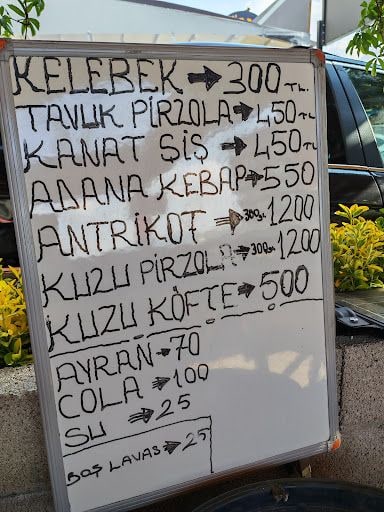 KELEBEK → 300 TL.
TAVUK PİRZOLA → 450 TL
KANAT ŞİŞ → 450 TL
ADANA KEBAP → 550
ANTRİKOT → 300g. 1200
KUZU PİRZOLA → 300gr 1200
KUZU KÖFTE → 500
AYRAN → 70
COLA → 100
SU → 25
BOŞ LAVAŞ → 25